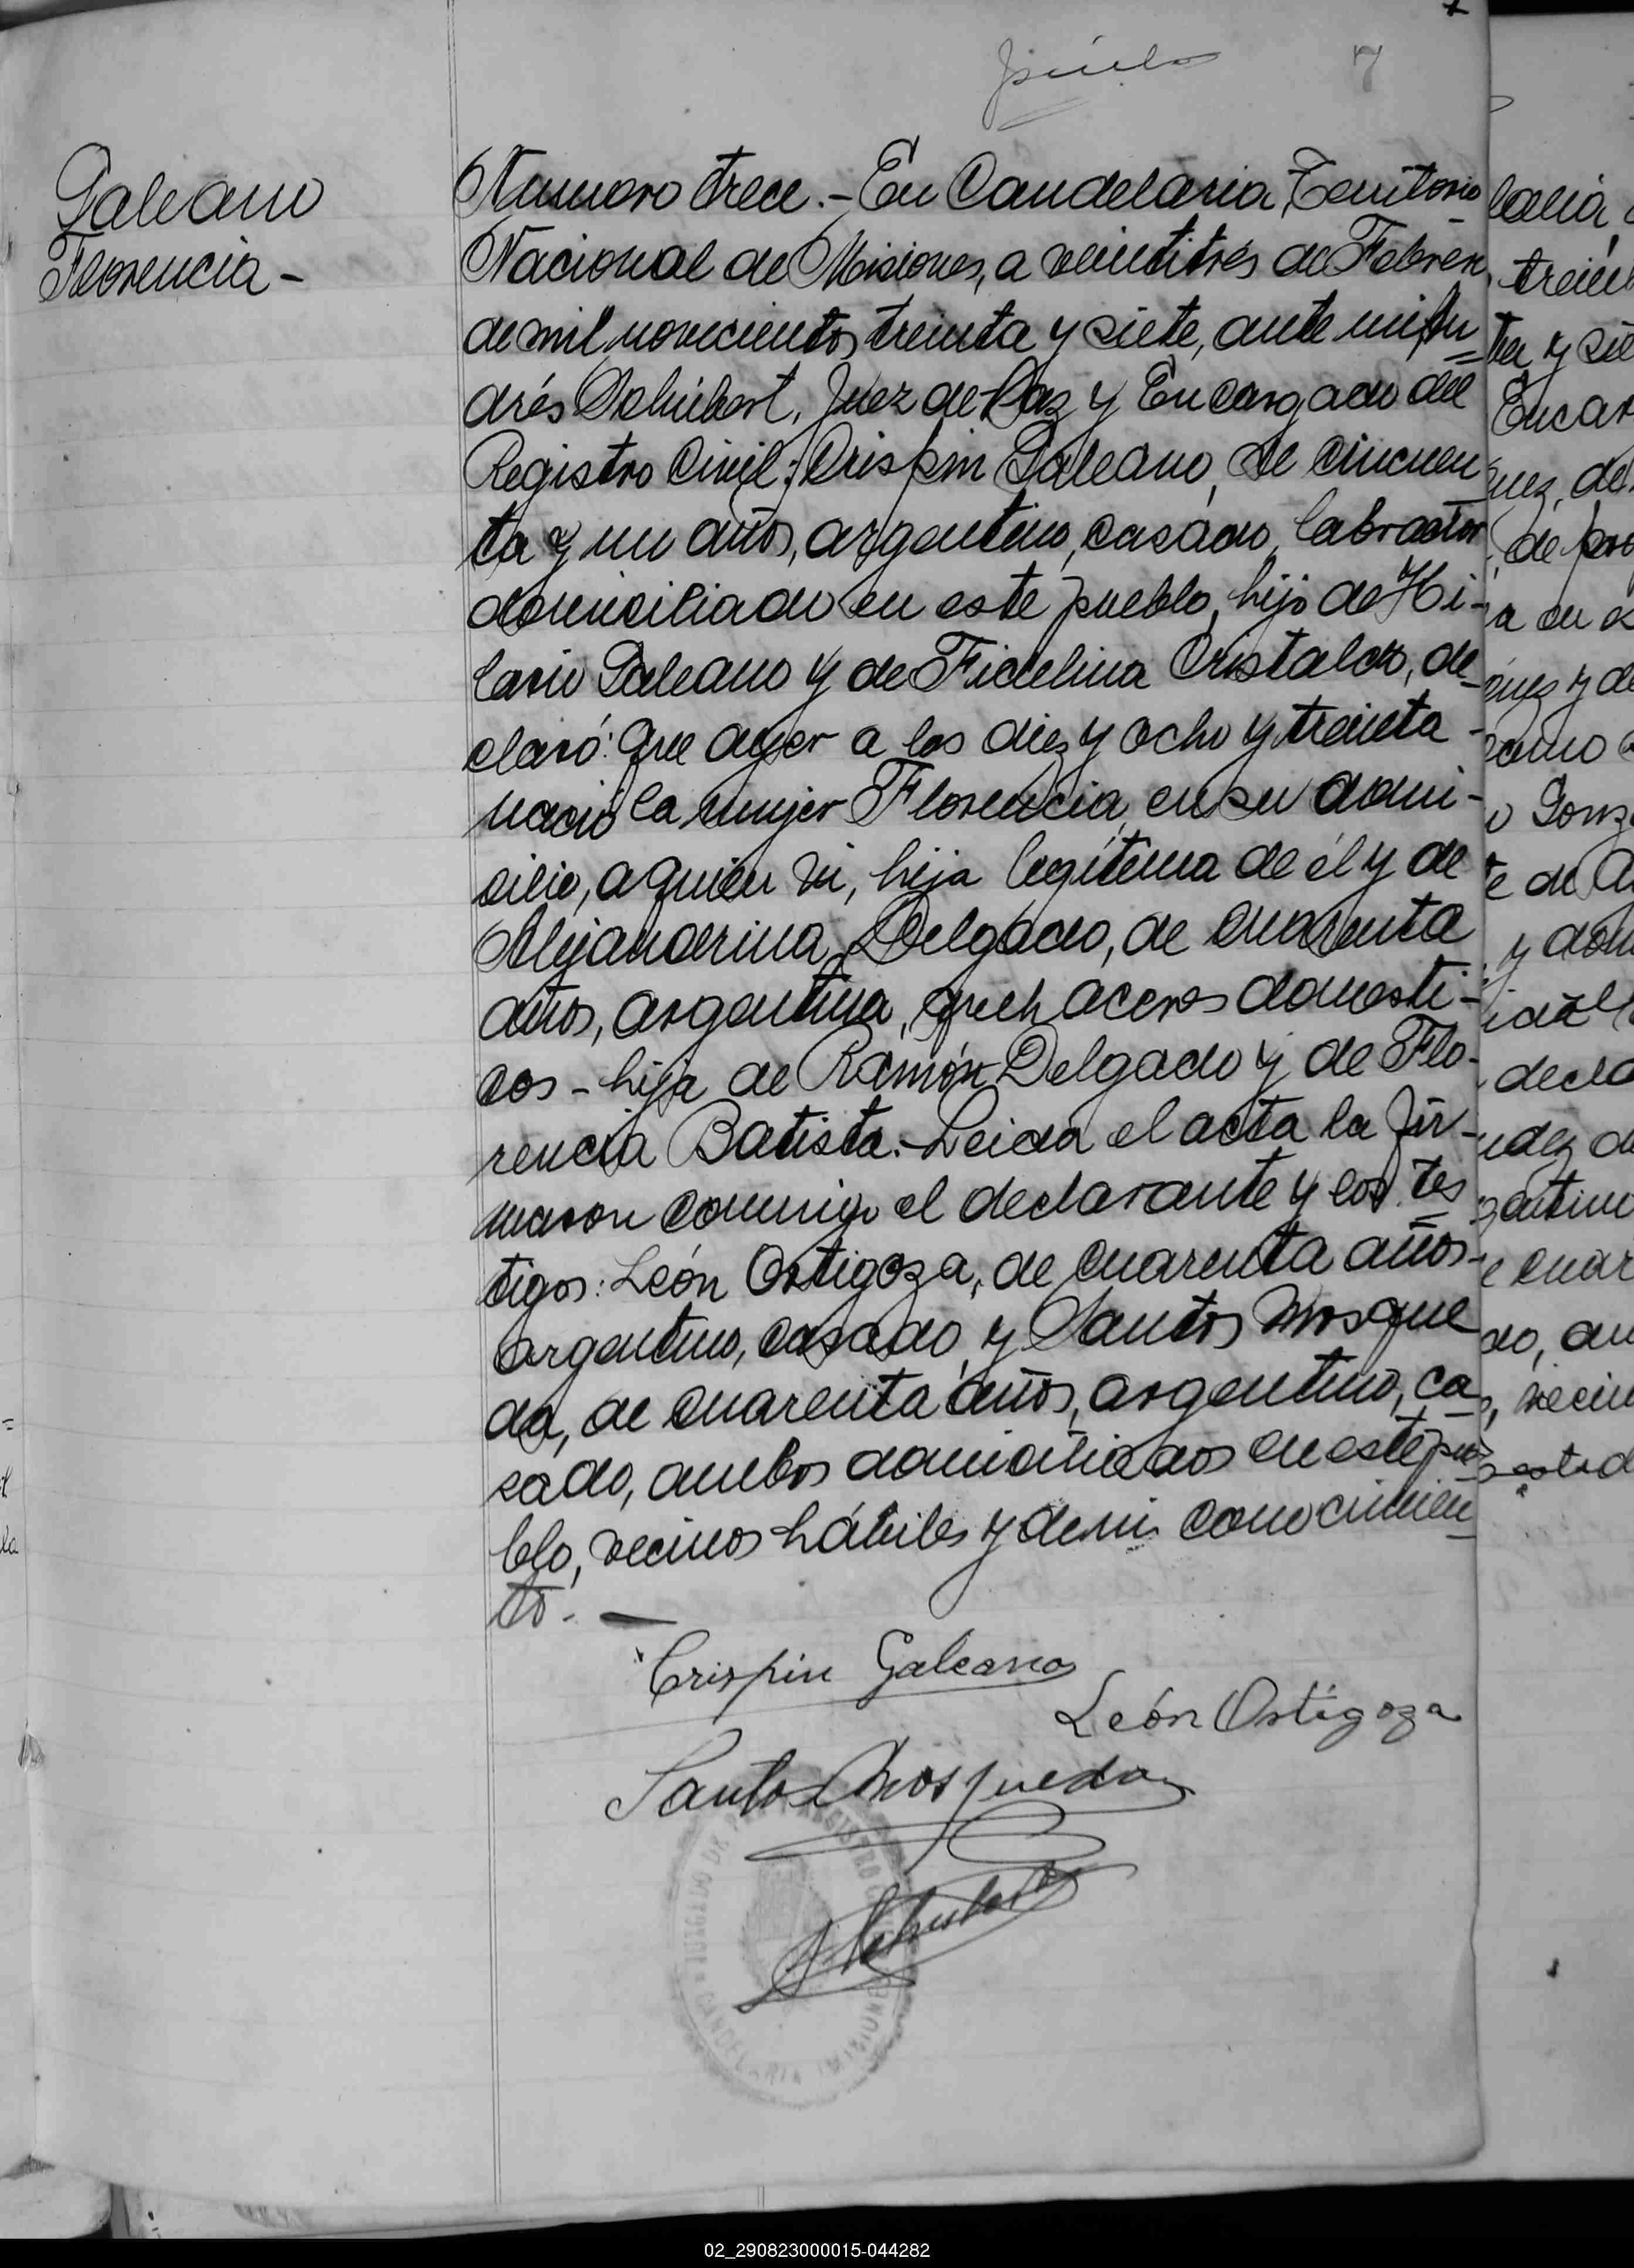 7
Galeano
Florencia-
Numero trece.- En Candelaria, Territorio
Nacional de Misiones, a veintitrés de Febrero
de mil novecientos treinta y siete, ante mi, An=
drés Schubert, Juez de Paz y Encargado del
Registro Civil; Crispin Galeano, de cincuen
ta y un años, argentino, casado, labrador
domiciliado en este pueblo, hijo de Hi-
lario Galeano y de Fidelina Cristaldo, de-
claró: Que ayer a las diez y ocho y treinta -
nació la mujer Florencia, en su domi-
cilio, a quien vi, hija legítima de él y de
Alejandrina Delgado, de cuarenta
años, argentina, quehaceres domesti-
cos - hija de Ramón Delgado y de Flo-
rencia Batista.- Leida el acta la fir-
maron conmigo el declarante y los tes=
tigos: León Ortigoza, de cuarenta años-
argentino, casado, y Santos Mosque
da, de cuarenta años, argentino, ca-
sado, ambos domiciliados en este pue
blo, vecinos hábiles y de mi conocimien
to. —
Crispin Galeano
León Ortigoza
Santos Mosqueda
Schubert
CANDELARIA (MISIONES)
02_290823000015-044282